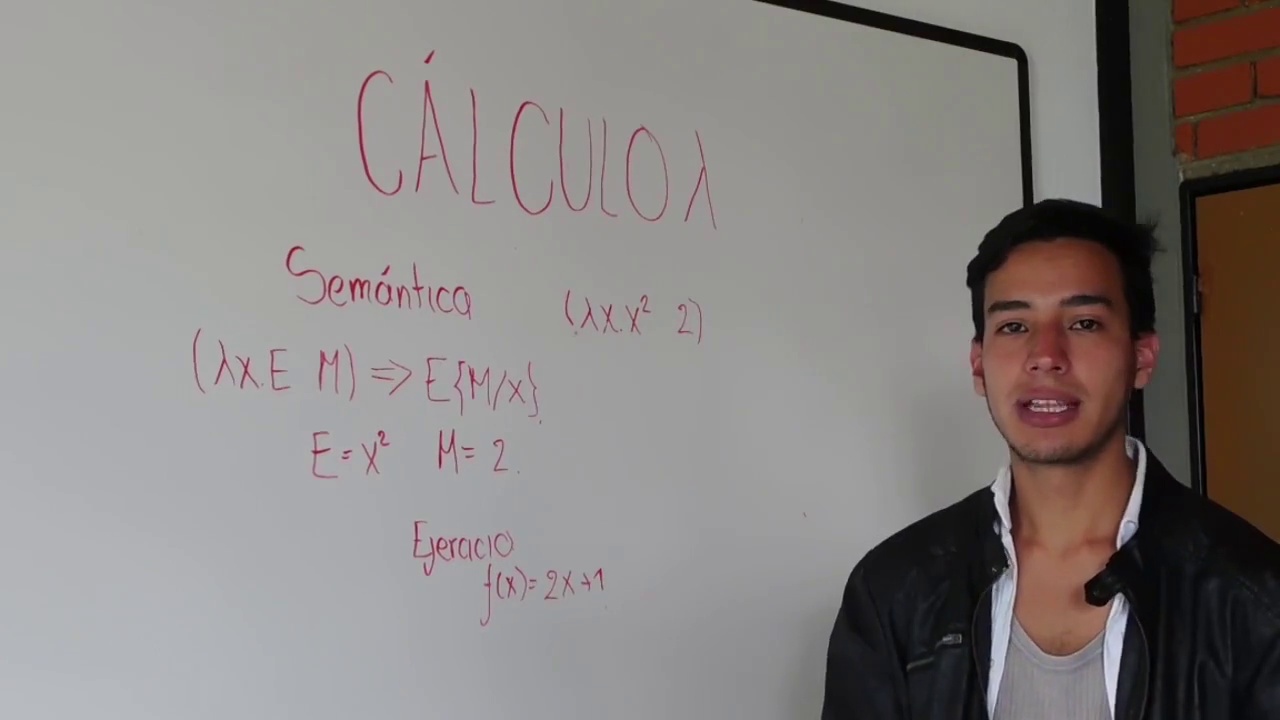 CÁLCULO λ
Semántica
(λx.x² 2)
(λx.E M) => E{M/x}.
E=x² M= 2.
Ejercicio
f(x)= 2x+1